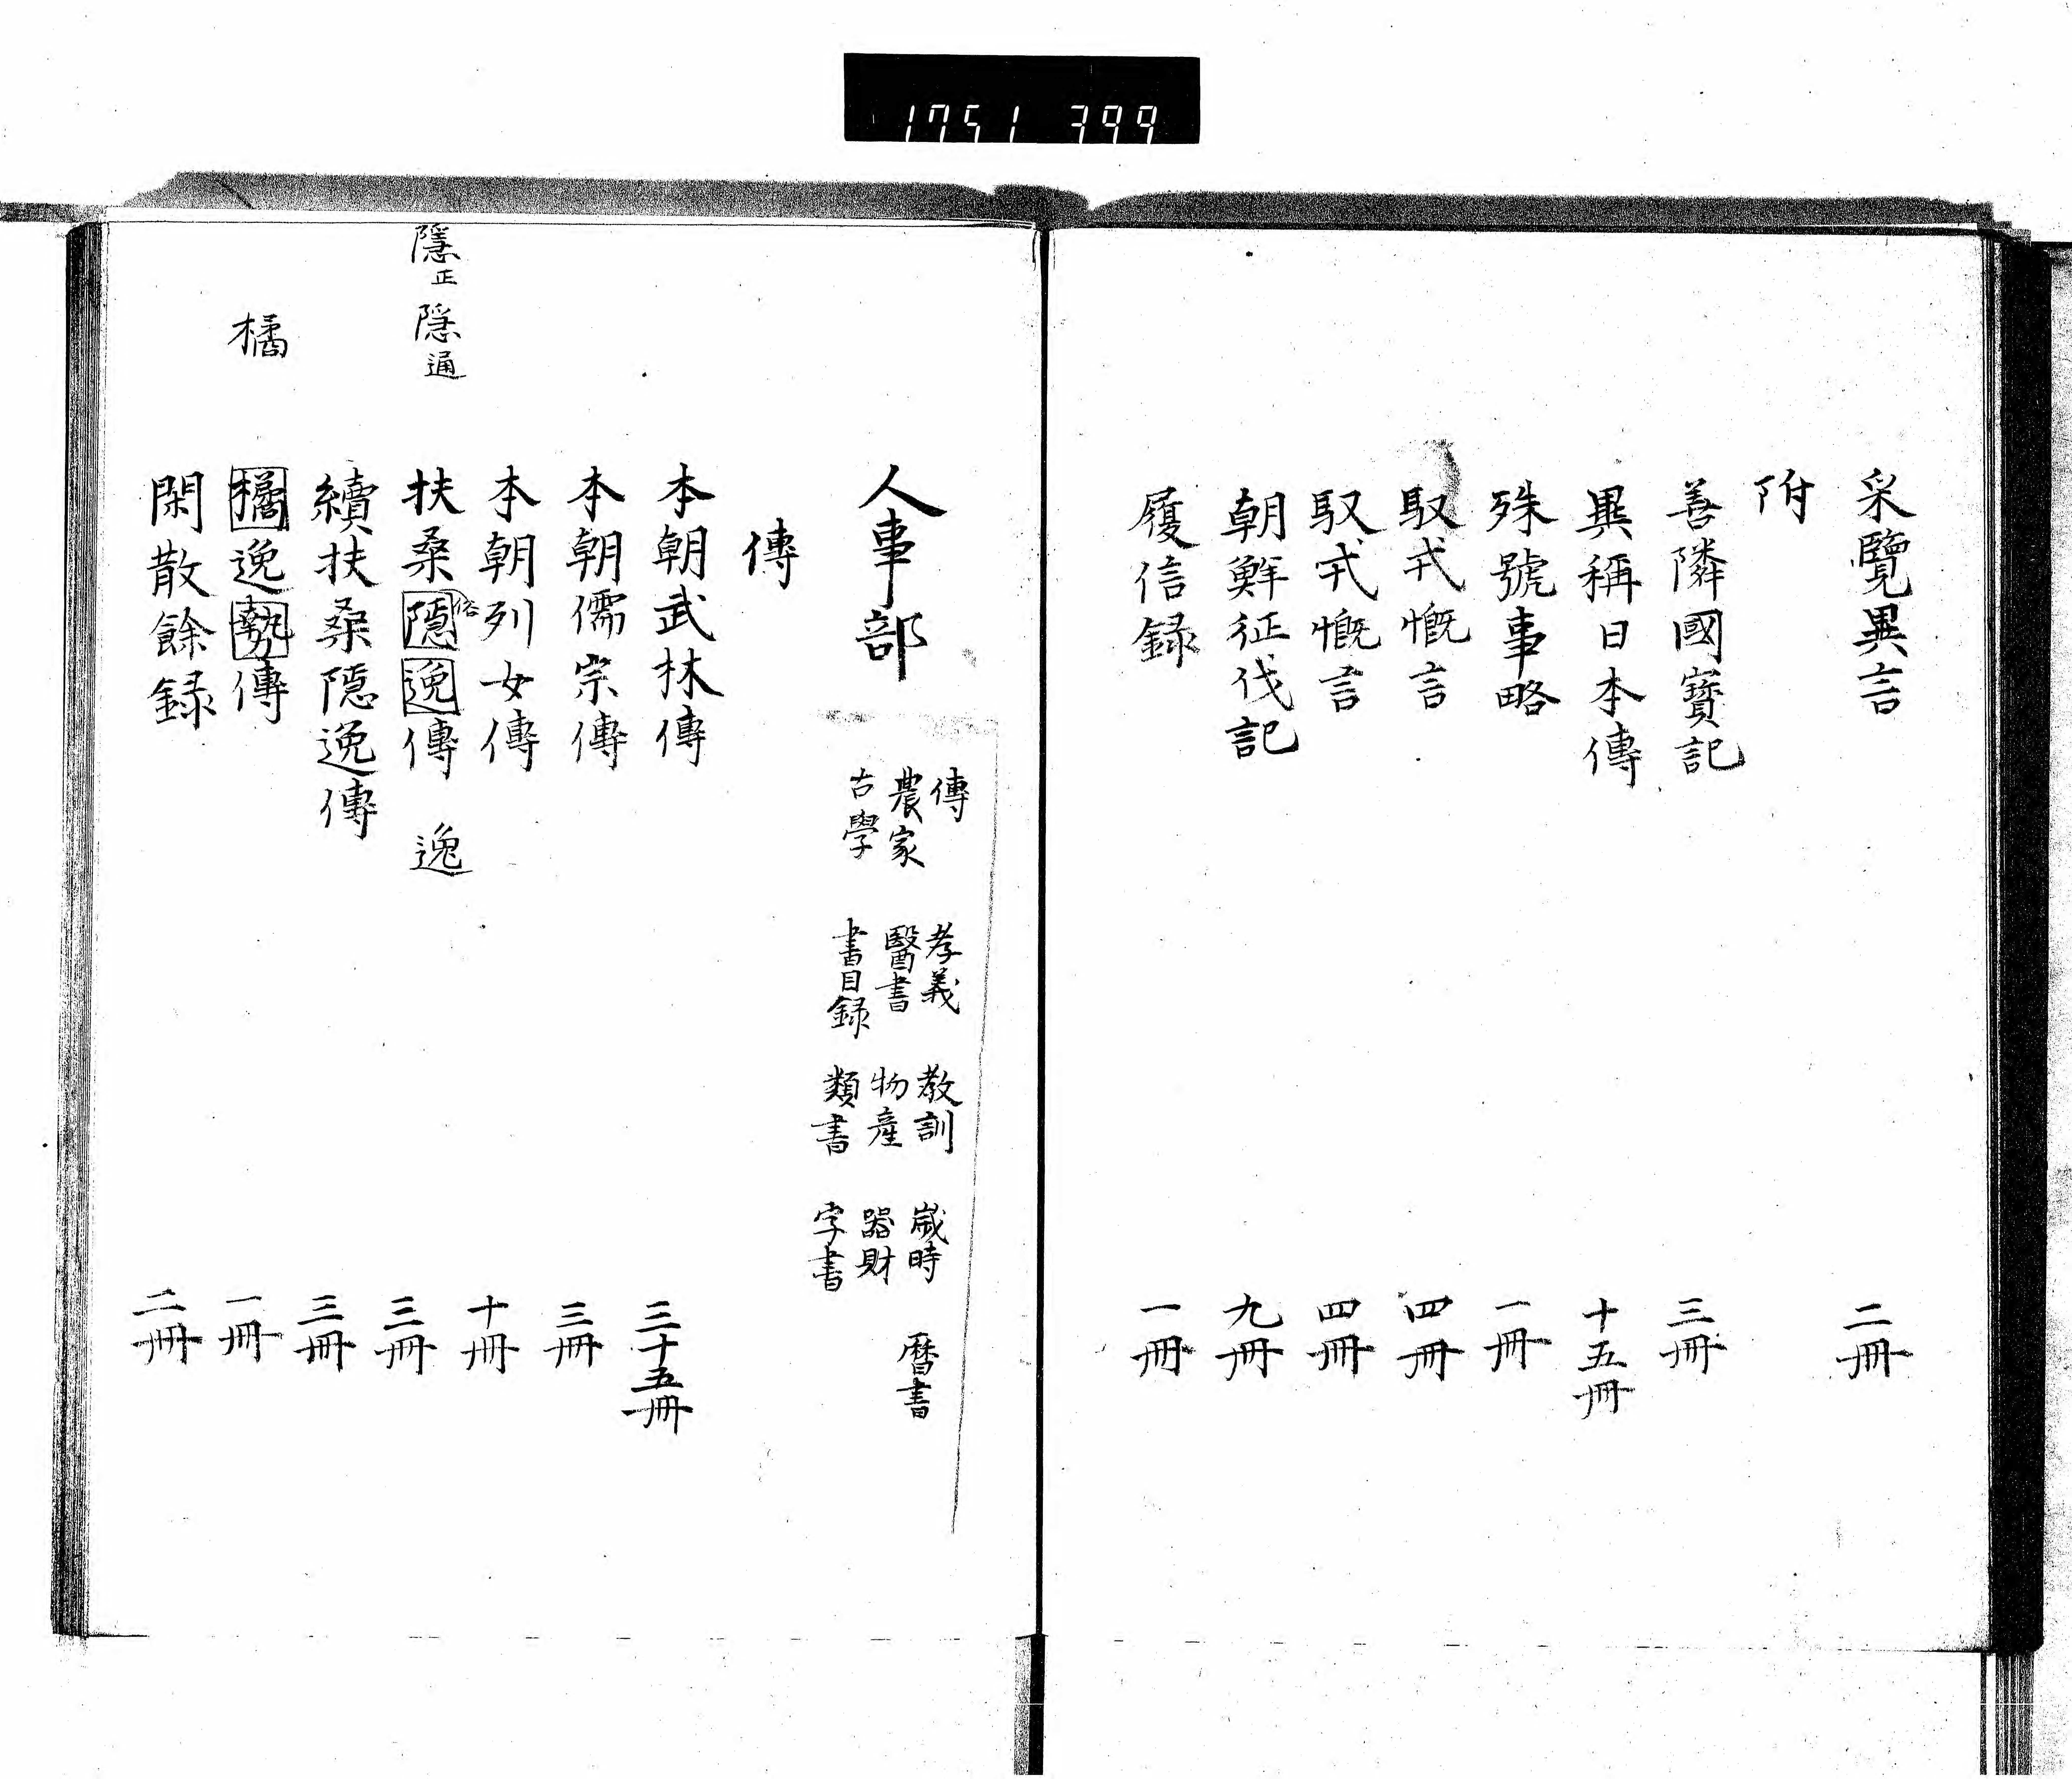 1751 399
采覽異言 二冊
附
善隣國寳記 三冊
異稱日本傳 十五冊
殊號事略 一冊
馭戎慨言 四冊
馭戎慨言 四冊
朝鮮征伐記 九冊
履信録 一冊
人事部
傳 孝義 教訓 歳時 暦書
農家 醫書 物産 器財
古學 書目録 類書 字書
傳
本朝武林傳 三十五冊
本朝儒宗傳 三冊
本朝列女傳 十冊
隱正 隠通
扶桑隠逸傳 逸 三冊
俗
續扶桑隠逸傳 三冊
橘
橘逸勢傳 一冊
閑散餘録 二冊